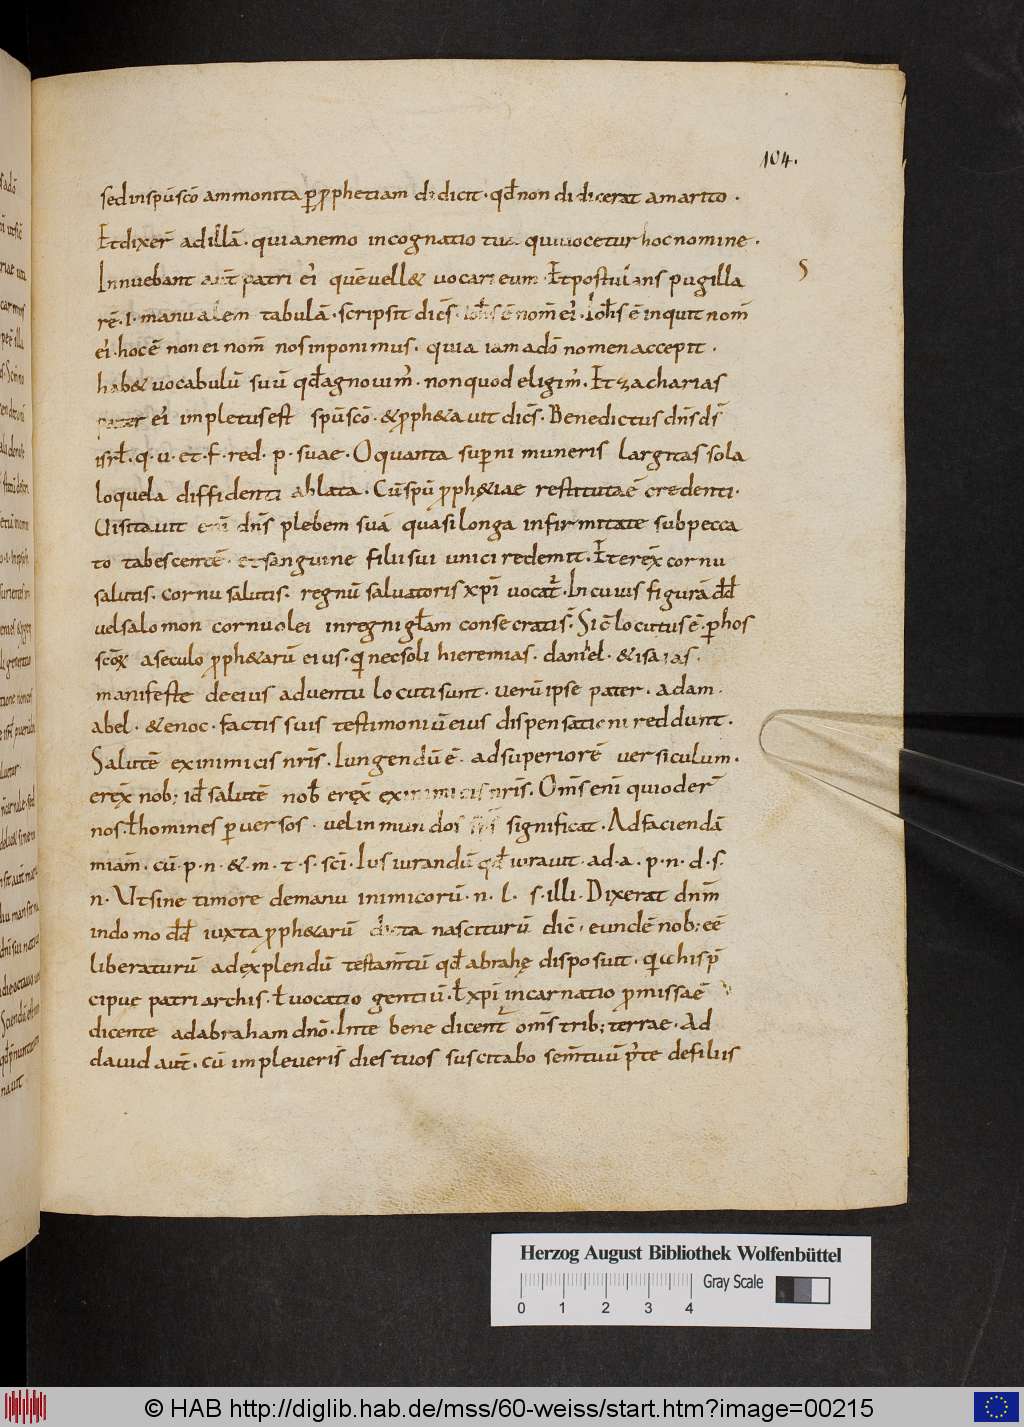 104.
sed in sp̄u sc̄o ammonita p̱ p̱phetiam didicit · qđ non didicerat a marito ·
Et dixer̄ ad illā · quia nemo in cognatio tua qui uocetur hoc nomine ·
Innuebant aut̄ patri ei' quē uell& uocari eum · Et postulans pugilla
rē · i · manualem tabulā · scripsit dicēs · Ioħs ē nom̄ ei' · Ioħs ē inquit nom̄
ei' · hoc ē non ei nom̄ nos inponimus · quia iam a dō nomen accepit ·
hab& uocabulū suū qđ agnouim' · non quod eligim' · Et zacharias
pater ei' impletus est spū scō · & p̱ph&auit dicēs · Benedictus dn̄s ds̄
isrł · q · u · et · f · red · p · suae · O quanta sup̱ni muneris largitas sola
loquela diffidenti ablata · Cū spū p̱ph&iae restituta ē credenti ·
Uisitauit enī dn̄s plebem suā quasi longa infirmitate sub pecca
to tabescentē · et sanguine filii sui unici redemit · Et erex̄ cornu
salutis · cornu salutis · regnū saluatoris xp̄i uocat̄ · In cuius figurā dđ
uel salomon cornu olei in regni głam consecrati s̄ · Sic̄ locutus ē · p̱ hos
scōꝝ a seculo p̱ph&arū eius · qi nec soli hieremias · daniel · & isaias ·
manifeste de eius aduentu locuti sunt · uerū ipse pater · adam ·
abel · & enoc · factis suis testimoniū eius dispensationi reddunt ·
Salutē ex inimicis nr̄is · Iungendū ē · ad superiorē uersiculum ·
erex̄ nob; id' salutē nob' erex̄ ex inimicis nr̄is · Om̄s enī qui oder̄
nos · ł homines p̱uersos · uel inmundos sp̄s significat · Ad faciendā
miam̄ · cū · p · n · & · m · t · s · scī · Ius iurandū qđ iurauit · ad · a · p · n · d · s ·
n · Ut sine timore de manu inimicorū · n · l · s · illi · Dixerat dn̄m
in domo dđ iuxta p̱ph&arū dicta nasciturū dic̄ · eundē nob; eē
liberaturū ad explendū testam̄tū qđ abrahę disposuit · qi his p̄
cipue patriarchis · ł uocatio gentiū · ł xp̄i incarnatio p̱missa ē
dicente ad abraham dn̄o · In te benedicent̄ om̄s trib; terrae · Ad
dauid aut̄ · cū impleueris dies tuos suscitabo sem̄ tuū p̄ te de filiis
Herzog August Bibliothek Wolfenbüttel
Gray Scale
0 1 2 3 4
© HAB http://diglib.hab.de/mss/60-weiss/start.htm?image=00215